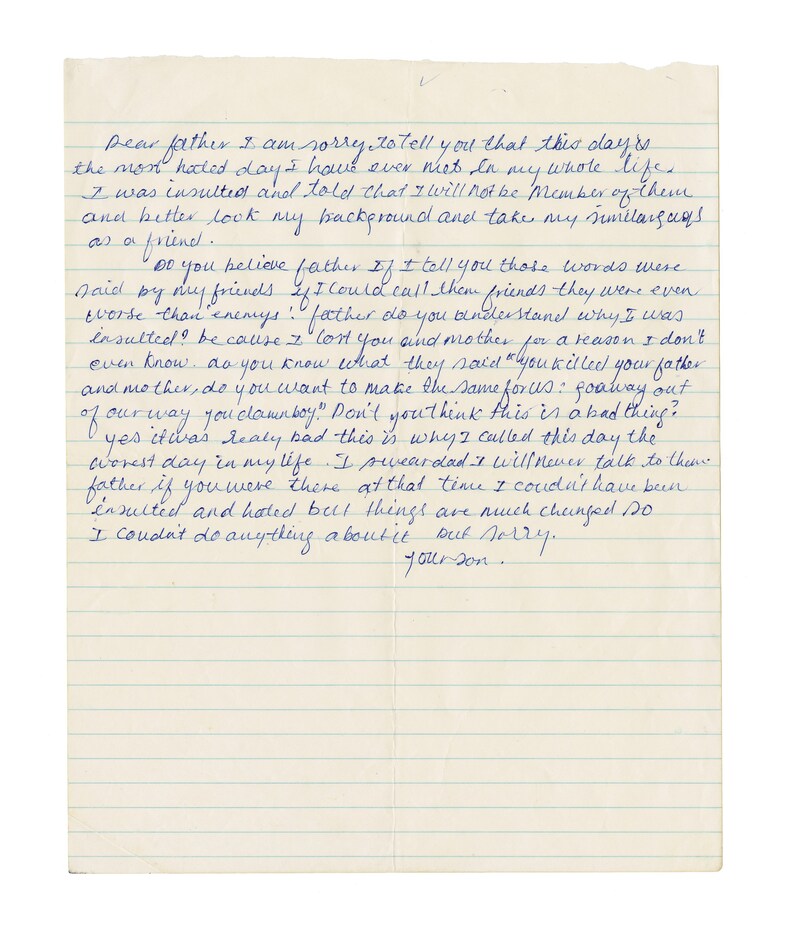 Dear father I am sorry to tell you that this day is
the most hated day I have ever met In my whole life.
I was insulted and told that I will not be Member of them
and better look my background and take my similar guys
as a friend.
Do you believe father If I tell you those words were
said by my friends if I could call them friends they were even
worse than enemys! father do you understand why I was
insulted? be cause I lost you and mother for a reason I don't
even know. do you know what they said "you killed your father
and mother, do you want to make the same for us? go away out
of our way you damn boy." Don't you think this is a bad thing?
yes it was realy bad this is why I called this day the
worest day in my life. I swear dad I will never talk to them.
father if you were there at that time I coudn't have been
insulted and hated but things are much changed so
I coudn't do anything about it but sorry.
your son.